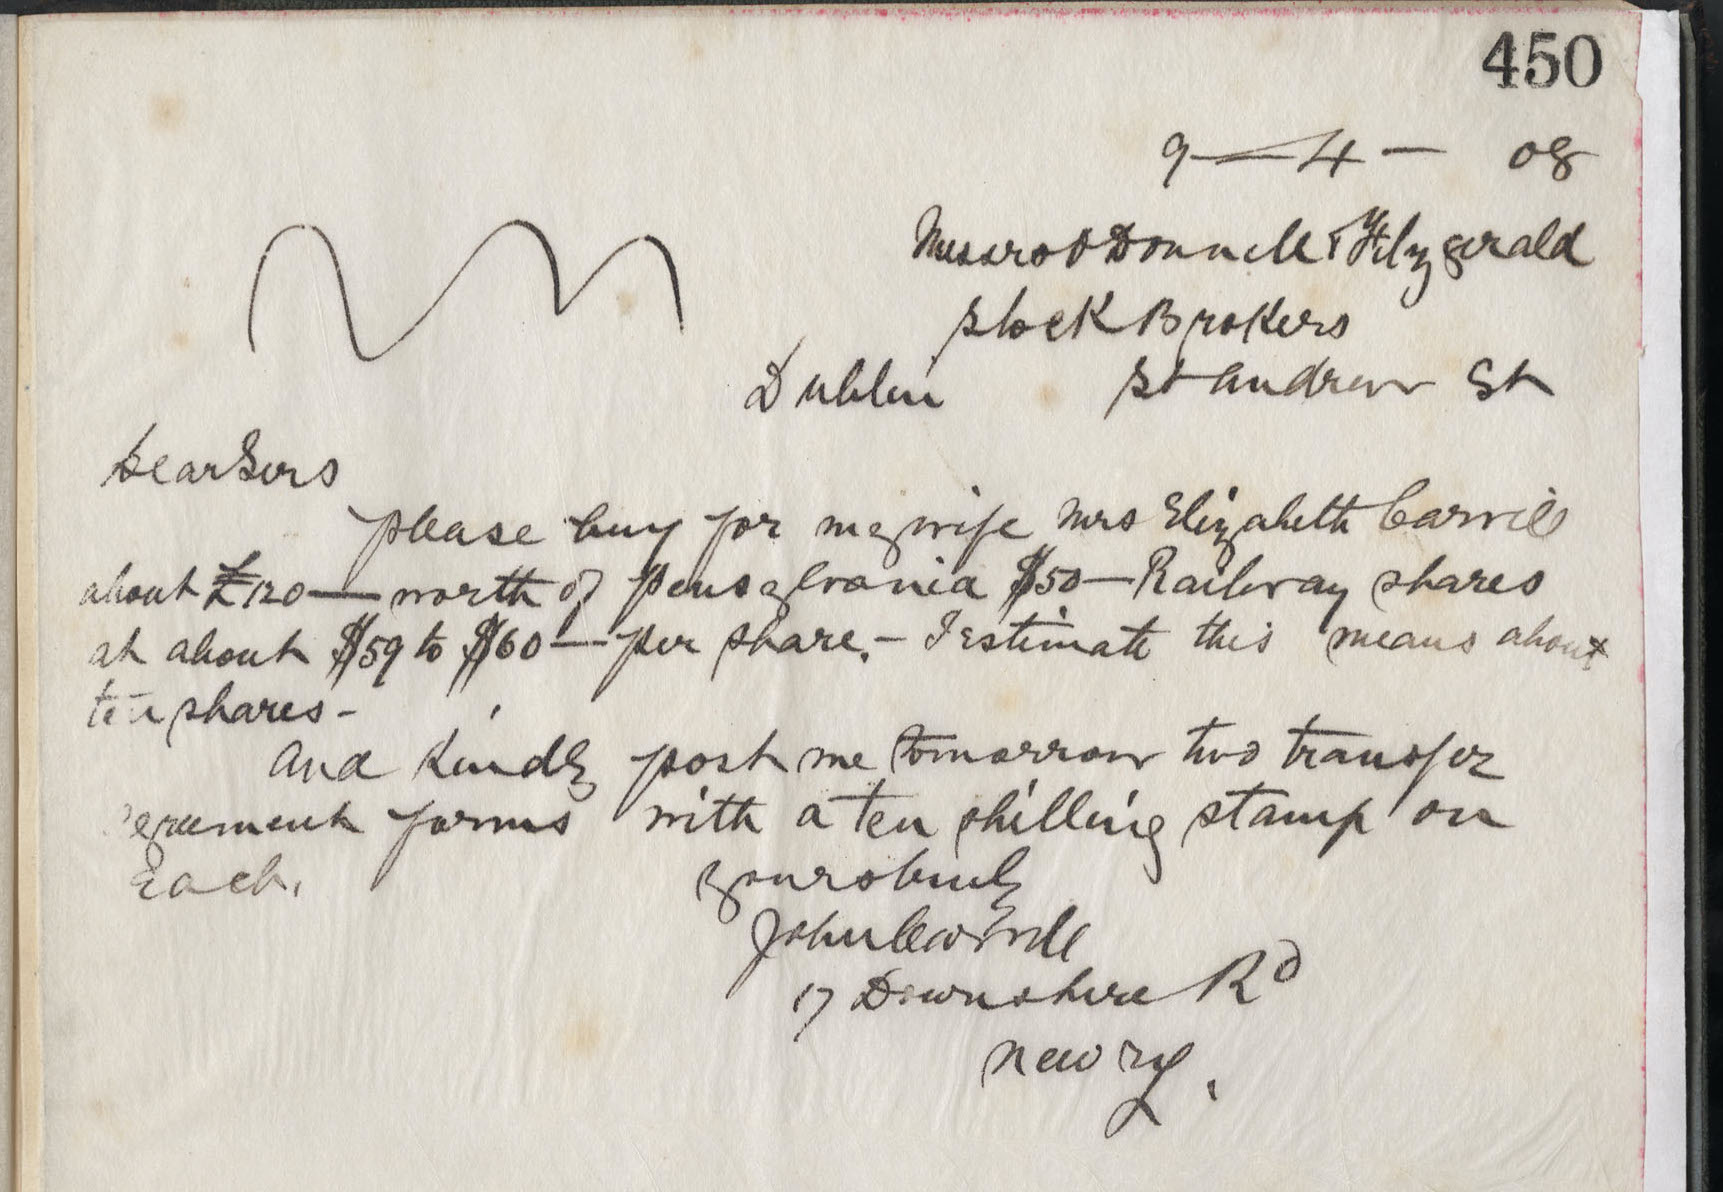 450
9 — 4 — 08
Messrs O Donnell & Fitzgerald
Stock Brokers
Dublin St Andrew St
Dear Sirs
please buy for my wife Mrs Elizabeth Carvill
about £120 — worth of Pensylvania $50 — Railway shares
at about $59 to $60 — per share. — I estimate this means about
ten shares -
And Kindly post me tomorrow two transfer
agreement forms with a ten shilling stamp on
Each.
yours truly
John Carvill
17 Downshire Rd
Newry.